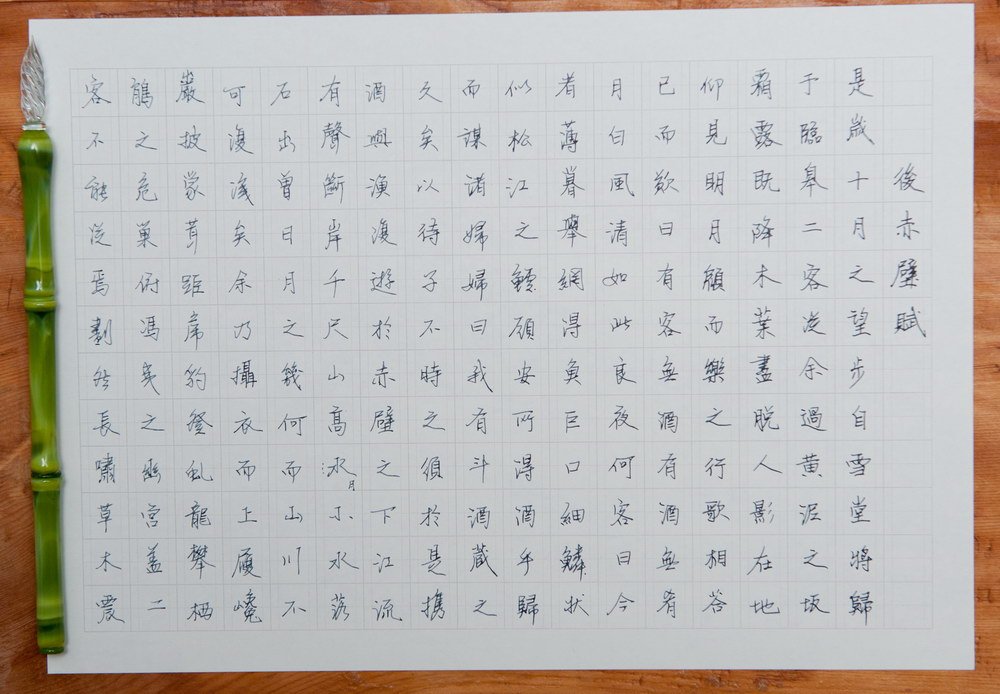 後赤壁賦
是歲十月之望步自雪堂將歸
于臨皋二客從余過黃泥之坂
霜露既降木葉盡脱人影在地
仰見明月顧而樂之行歌相答
已而歎曰有客無酒有酒無肴
月白風清如此良夜何客曰今
者薄暮舉網得魚巨口細鱗狀
似松江之鱸顧安所得酒乎歸
而謀諸婦婦曰我有斗酒藏之
久矣以待子不時之須於是携
酒與漁復遊於赤壁之下江流
有聲斷岸千尺山高水月小水落
石出曾日月之幾何而山川不
可復識矣余乃攝衣而上履巉
巖披蒙茸踞虎豹登虬龍攀栖
鶻之危巢俯馮夷之幽宮蓋二
客不能從焉劃然長嘯草木震